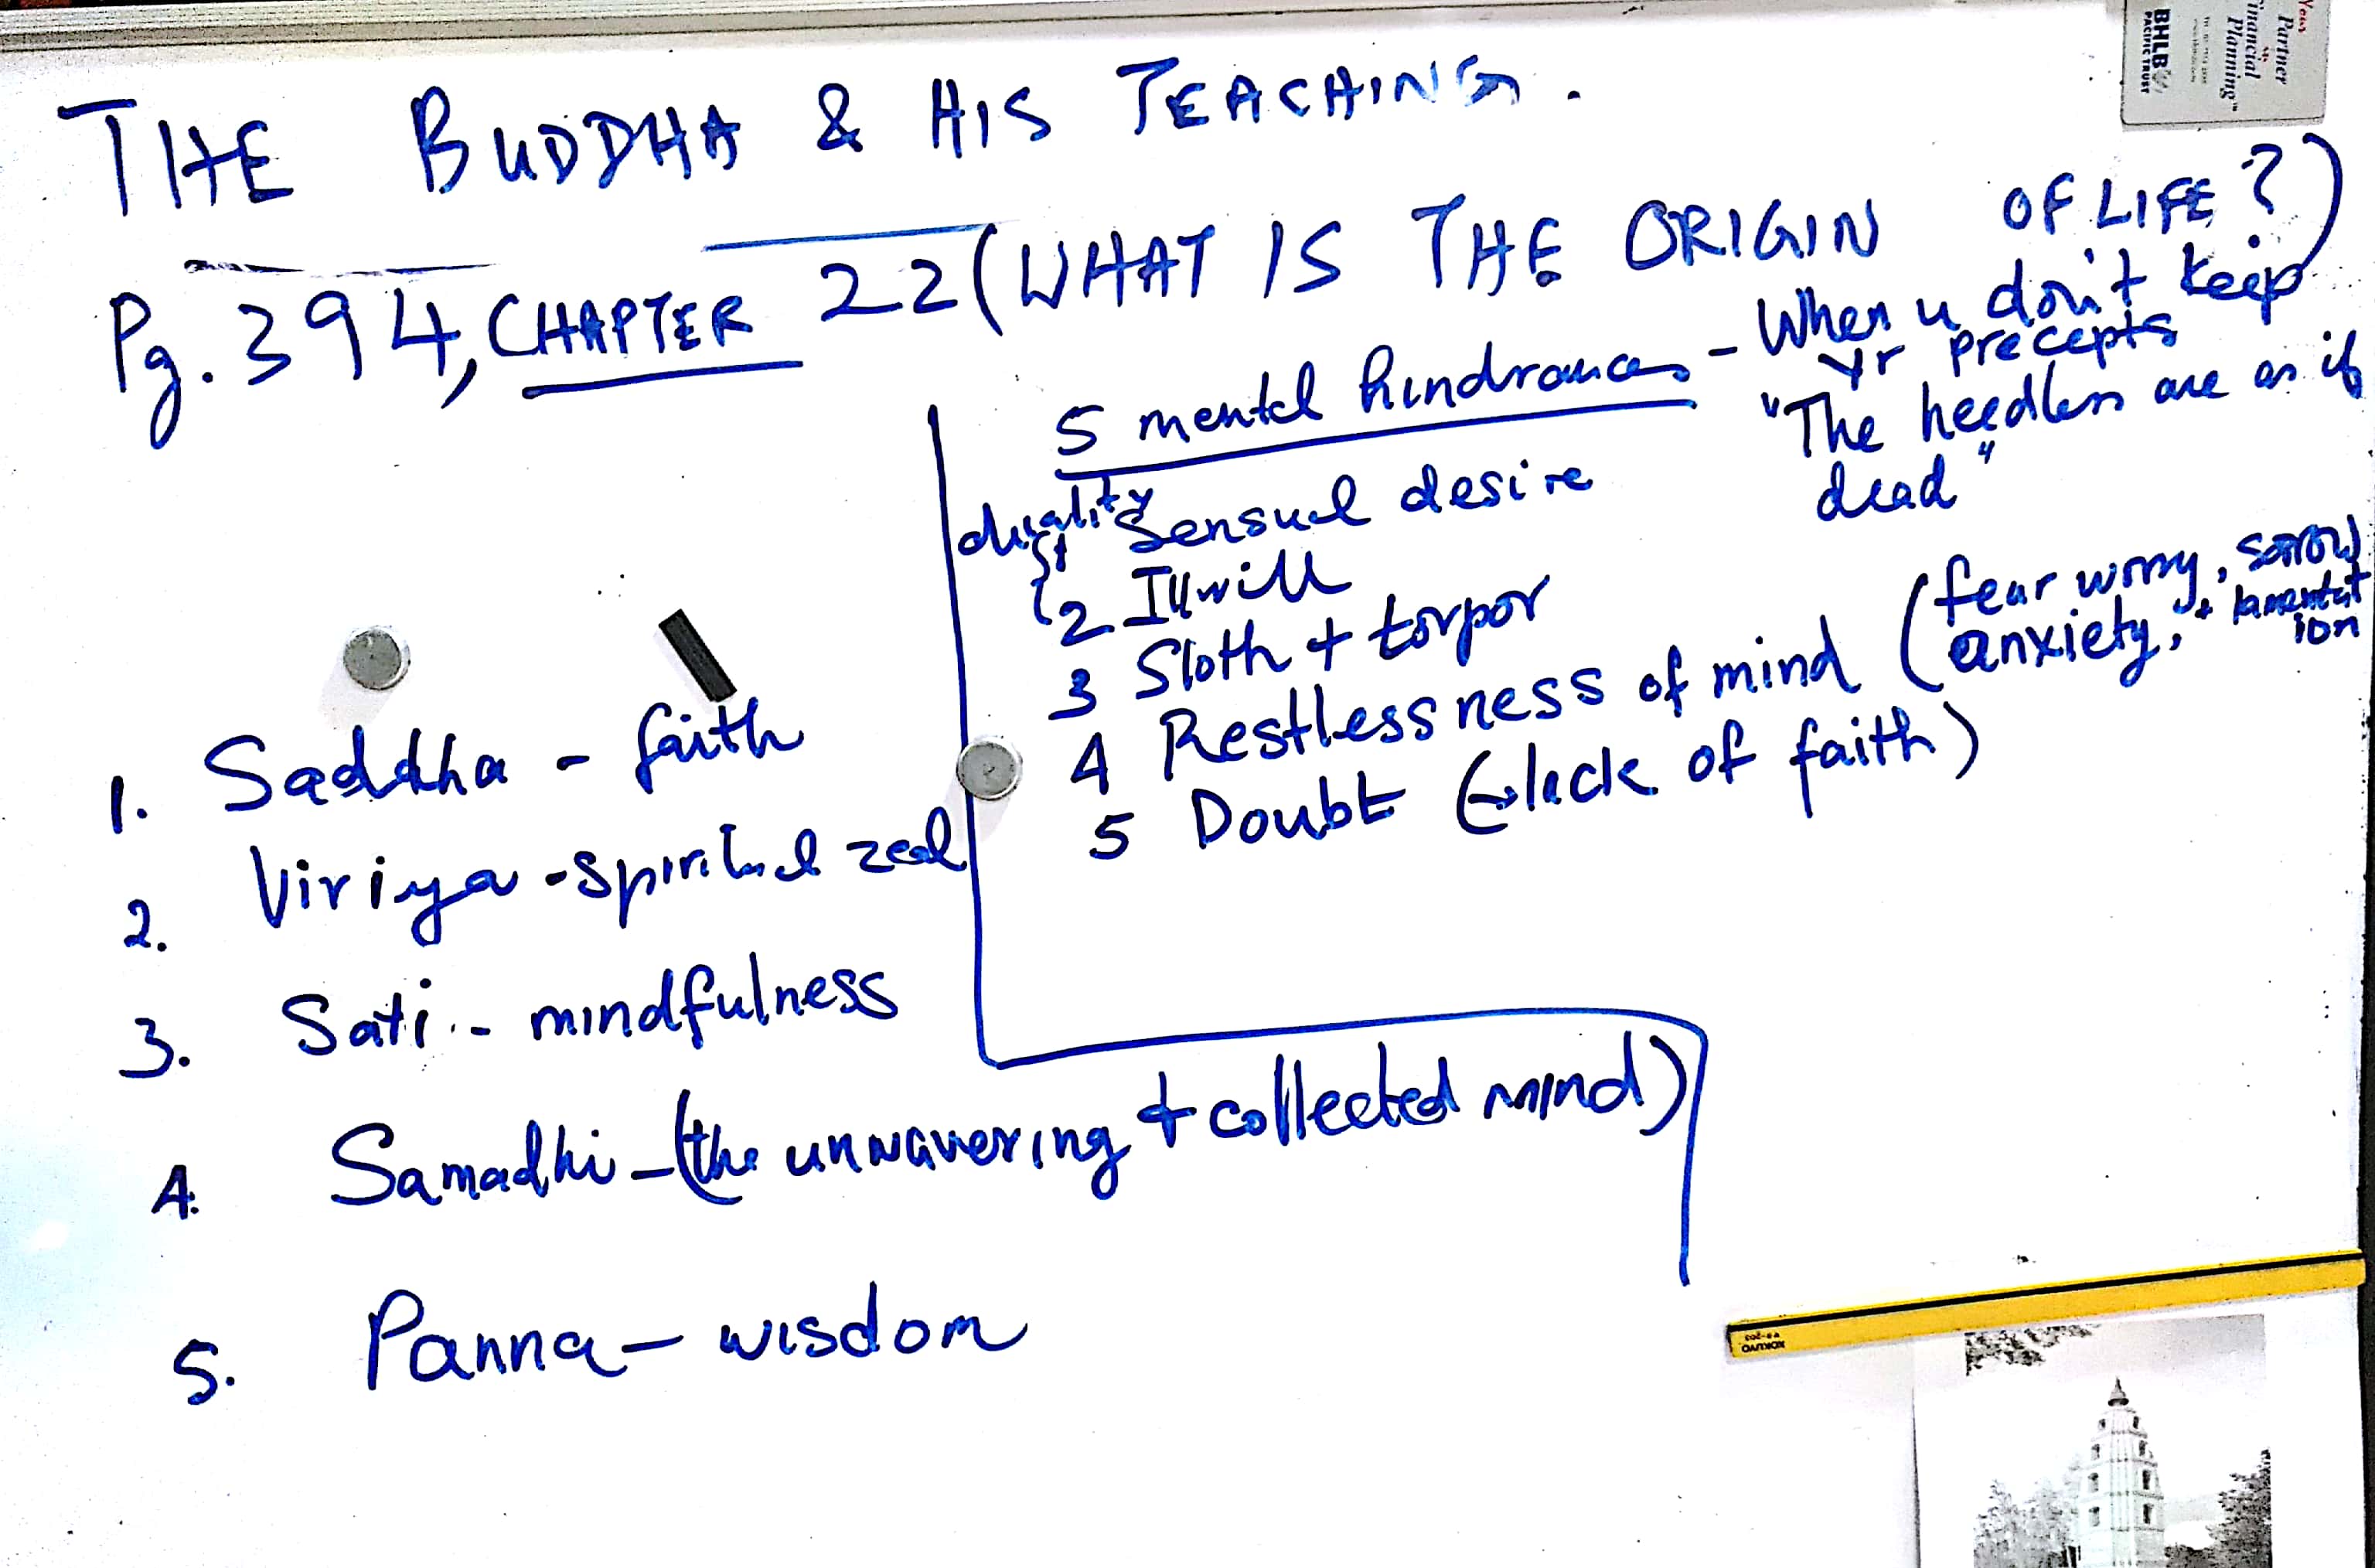 THE BUDDHA & HIS TEACHING.
Pg. 394, CHAPTER 22 (WHAT IS THE ORIGIN OF LIFE?)
5 mental hindrances - When u don't keep
yr precepts
"The heedless are as if
dead"
duality
1 Sensual desire
2 Illwill
3 Sloth + torpor
4 Restlessness of mind (fear worry, sorrow
anxiety, + lamentat
ion
5 Doubt (→ lack of faith)
1. Saddha - faith
2. Viriya - spiritual zeal
3. Sati - mindfulness
4. Samadhi - (the unwavering + collected mind)
5. Panna - wisdom
Your Partner
in
Financial
Planning"
BHLB
PACIFIC TRUST
KOKUYO